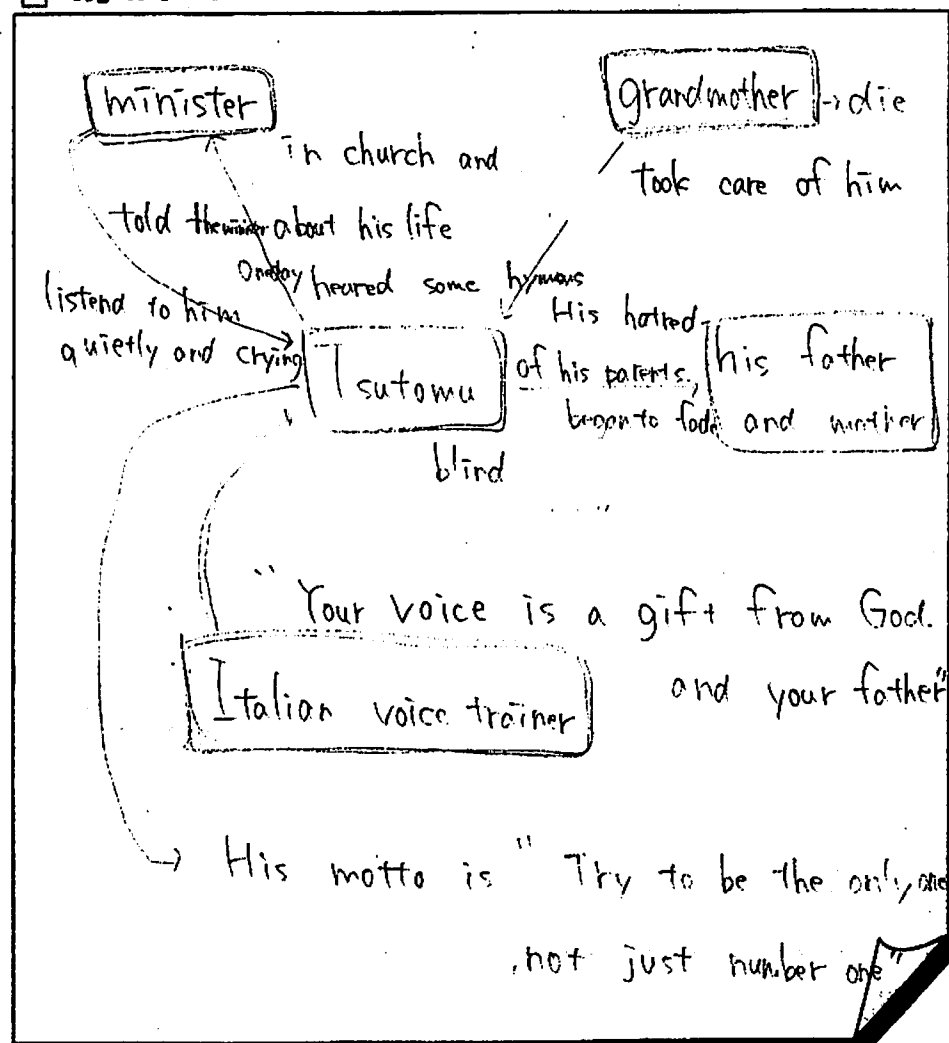 minister
grandmother → die
in church and
took care of him
told the minister about his life
One day heared some hymns
listend to him
quietly and crying
His hatred
of his parents,
began to fade
his father
and mother
Tsutomu
blind
"Your voice is a gift from God.
and your father"
Italian voice trainer
→ His motto is "Try to be the only one
,not just number one"